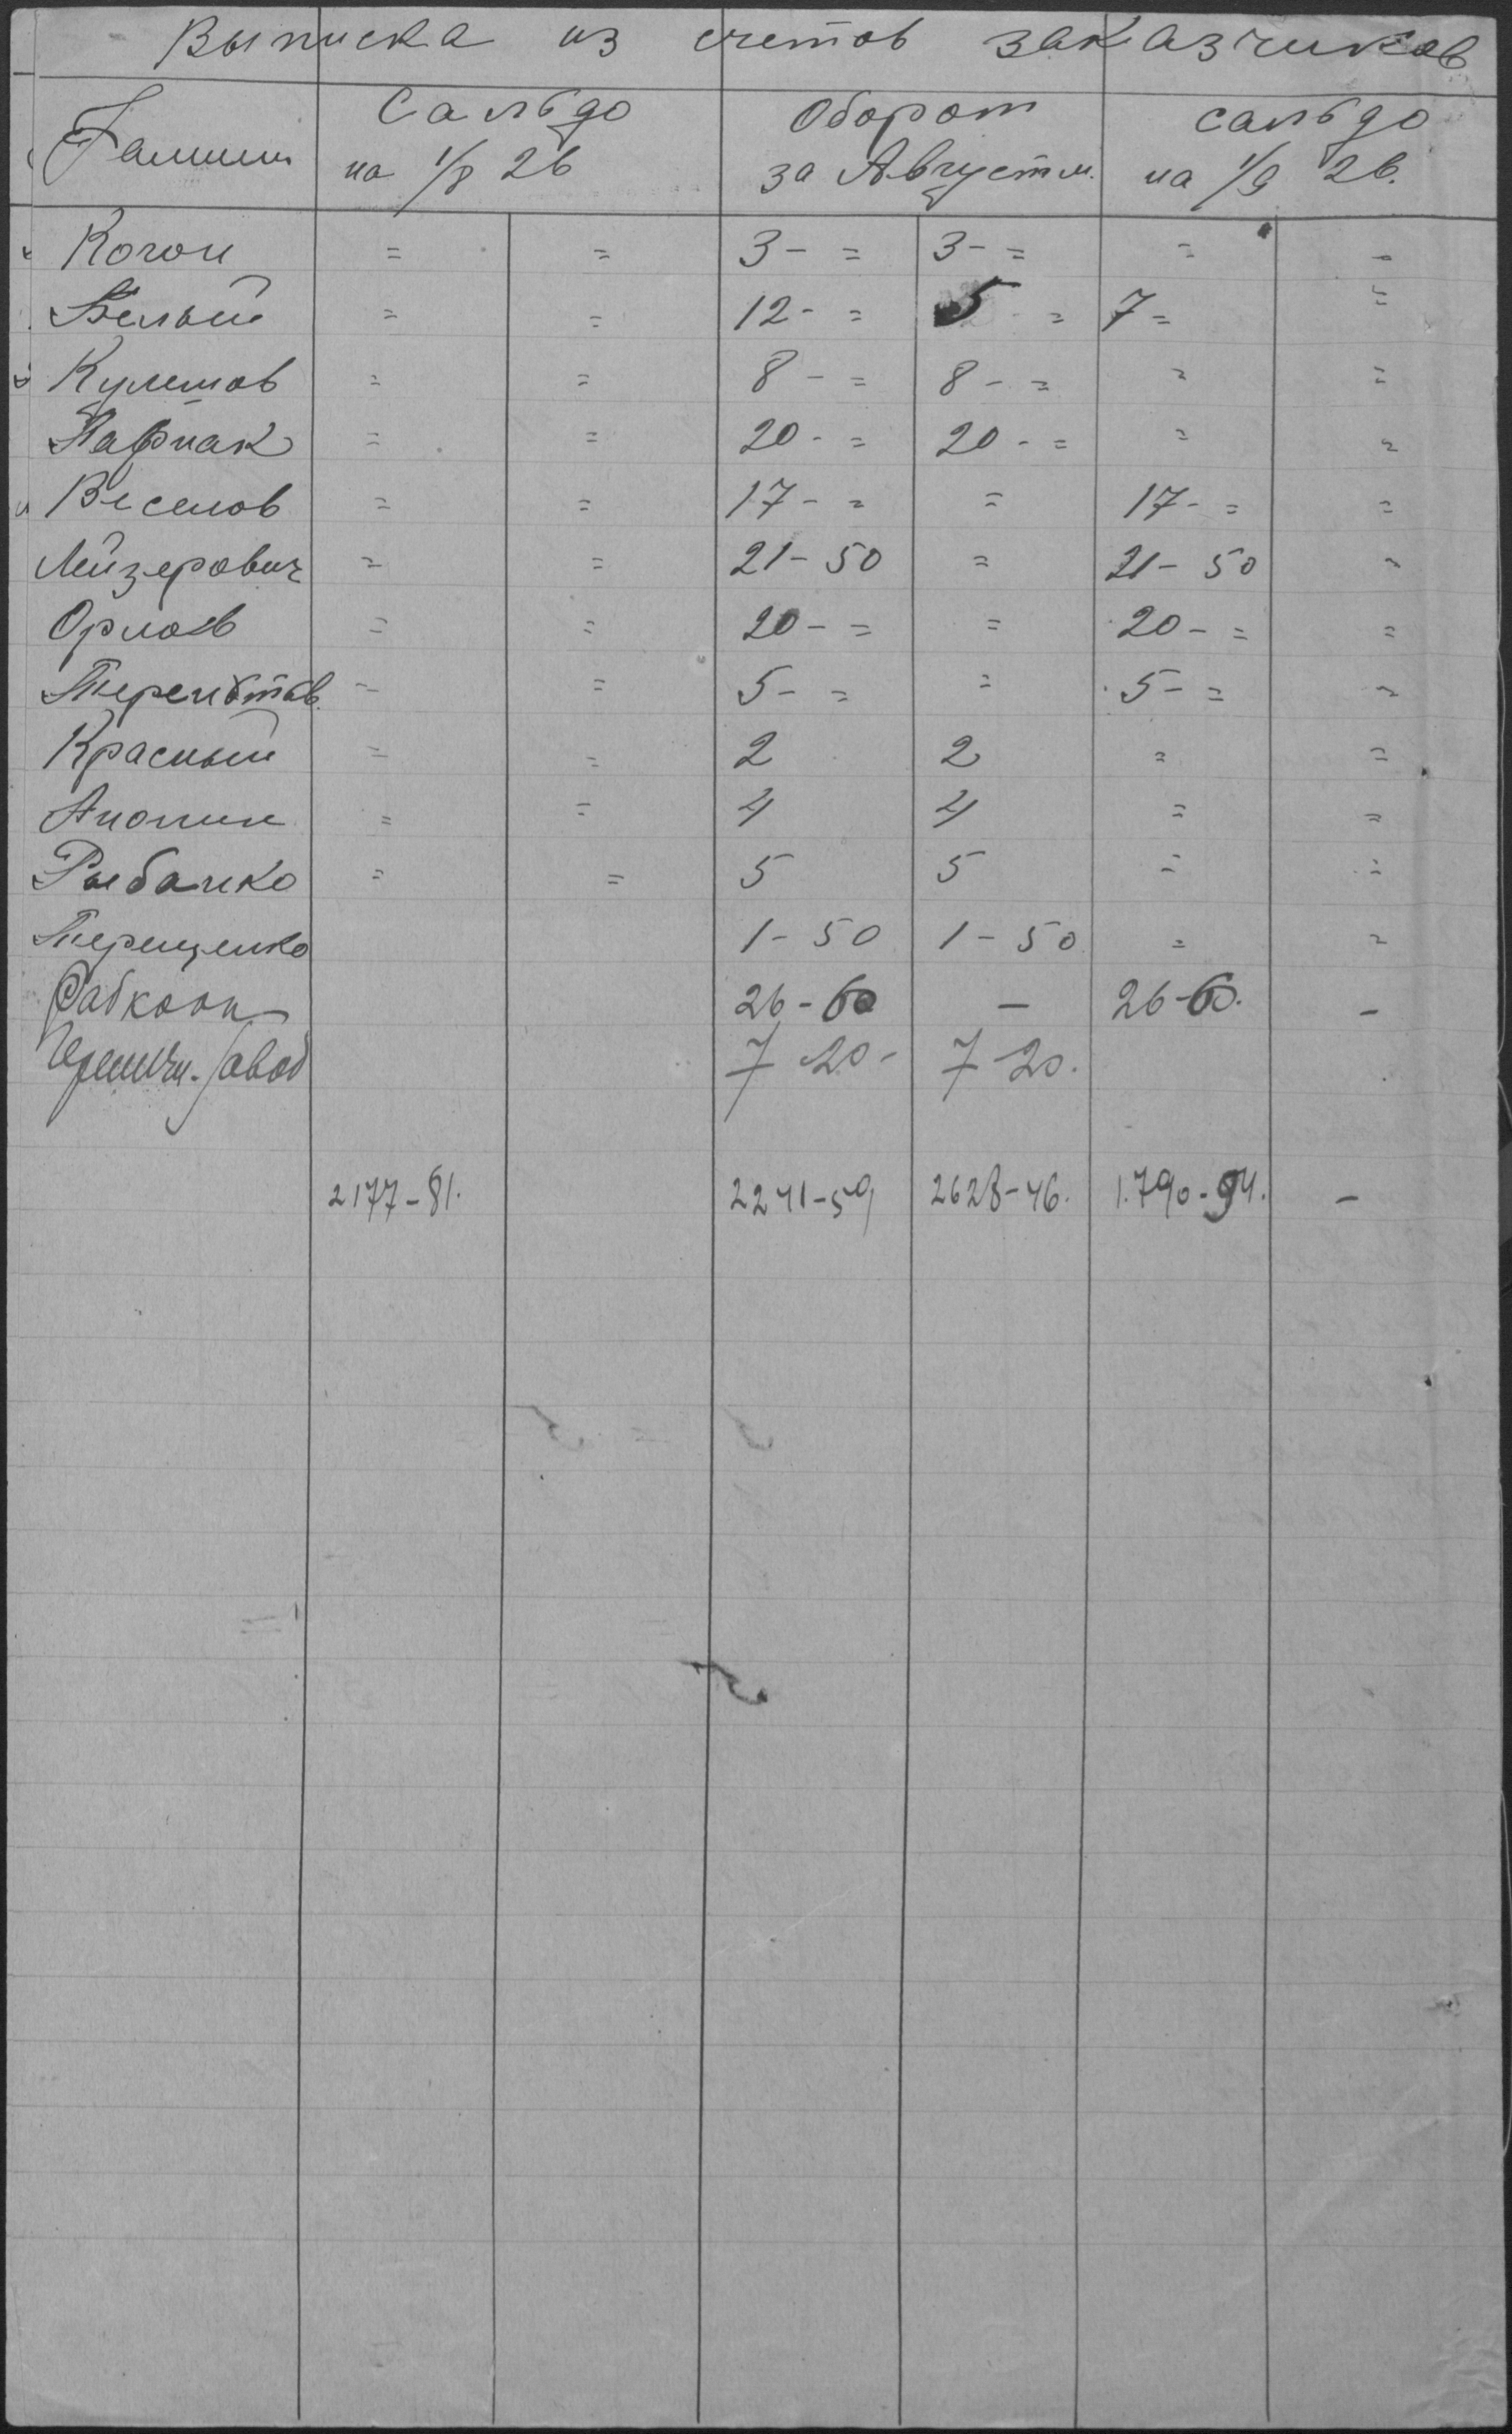 Выписка из счетов заказчиков
Фамилии Сальдо на 1/8 26 Оборот за Август м. сальдо на 1/9 26.
Когон = = 3 - = 3 - = = -
Белый = = 12 - = 5 - = 7 = =
Кулешов = = 8 - = 8 - = = =
= = 20 - = 20 - = = =
Веселов = = 17 - = = 17 - = =
Лейзерович = = 21 - 50 = 21 - 50 =
Орлов = = 20 - = = 20 - = =
= = 5 - = = 5 - = =
Красный = = 2 2 = =
= = 4 4 = =
Рыбалко = = 5 5 = =
Терещенко 1 - 50 1 - 50 = =
Рабкооп 26 - 60 - 26 - 60. -
завод 7 20 - 7 20.
2177 - 81. 2241 - 59 2628 - 46. 1.790 - 94. -